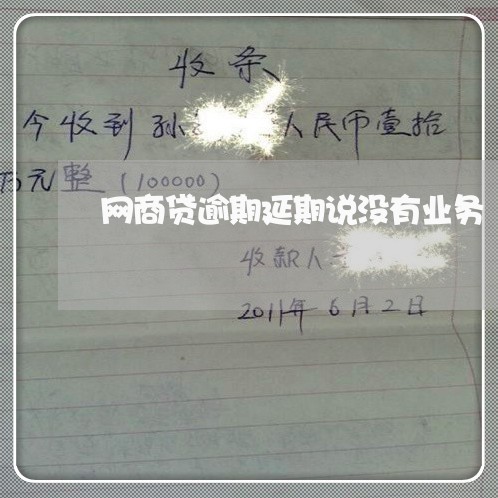 收条
今收到孙 人民币壹拾
万元整(100000)
网商贷逾期延期说没有业务
收款人
2011年6月2日